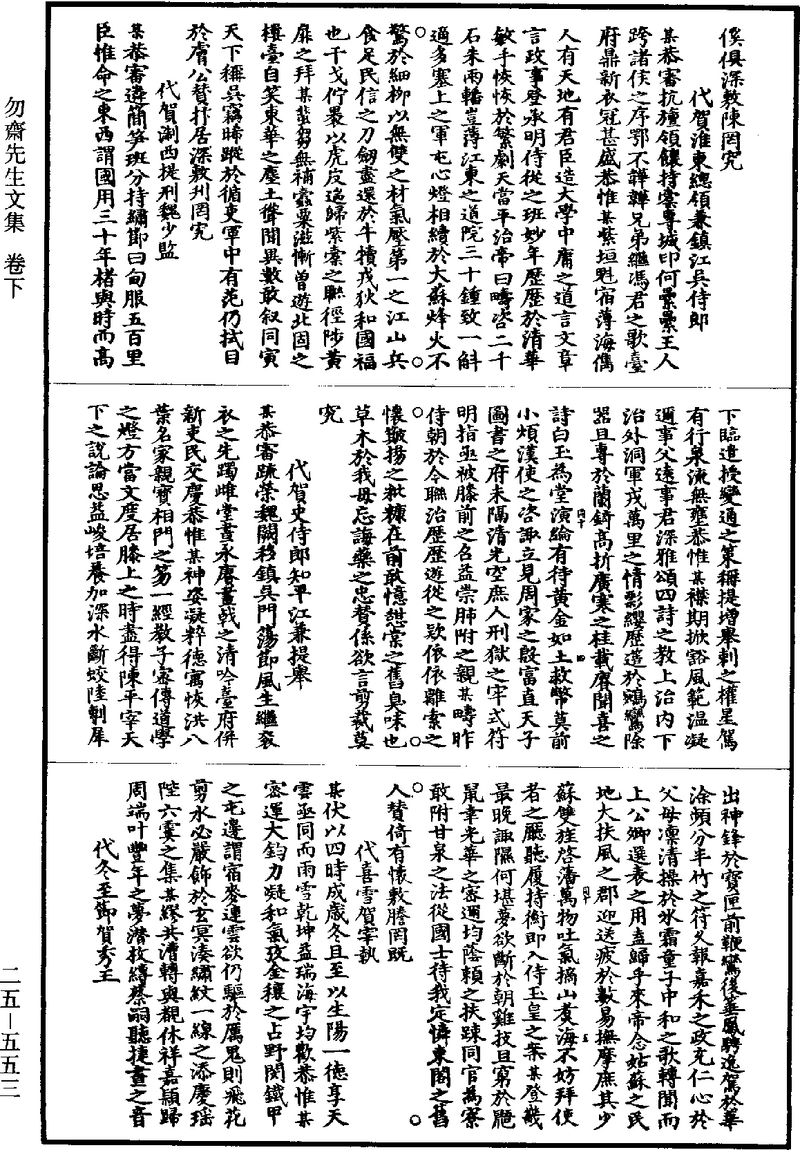 俟俱深敷陳罔究
代賀淮東總領兼鎮江吳侍郎
某恭審抗旜領饟持橐專城印何纍纍王人
跨諸侯之序鄂不韡韡兄弟繼馮君之歌臺
府鼎新衣冠甚盛恭惟某紫垣魁宿薄海儁
人有天地有君臣造大學中庸之道言文章
言政事登承明侍從之班妙年歷歷於清華
敏手恢恢於繁劇天當平治帝曰疇咨二千
石朱兩轓豈薄江東之道院三十鍾致一斛
適多塞上之軍屯心燈相續於大蘇烽火不
驚於細柳以無雙之材氣壓第一之江山兵
食足民信之刀劒盡還於牛犢戎狄和國福
也干戈佇橐以虎皮遄歸紫橐之聯徑陟黃
扉之拜某蜚芻無補蠹粟滋慚曾遊北固之
樓臺自笑東華之塵土聳聞異數敢叙同寅
天下稱吳竊睎蹤於循吏軍中有范仍拭目
於膚公贊抃居深敷刋罔究
代賀淛西提刑魏少監
某恭審遴簡笏班分持繡節曰甸服五百里
臣惟命之東西謂國用三十年楮與時而高
下臨遣授變通之策稱提增舉刺之權星駕
有行泉流無壅恭惟某襟期掀豁風範温凝
邇事父遠事君深雅頌四詩之教上治内下
治外洞軍戎萬里之情影纓歷蓬於鵷鸞除
器且專於蘭錡高折廣寒之桂載賡聞喜之
詩白玉為堂演綸有待黃金如土救幣莫前
小煩漢使之咨諏立見周家之殷富直天子
圖書之府未隔清光空庶人刑獄之牢式符
明指亟被膝前之召益崇肺附之親某疇昨
侍朝於今聯治歷歷遊從之欵依依離索之
懷簸揚之粃糠在前敢憶甜棠之舊臭味也
草木於我毋忘誨藥之忠贊係欲言剪裁莫
究
代賀史侍郎知平江兼提舉
某恭審疏榮魏闕移鎮吳門蕩節風生繼衮
衣之先躅雌堂晝永賡畫戟之清吟臺府併
新吏民交慶恭惟某神姿凝粹德㝢恢洪八
葉名家親寶相門之笏一經教子密傳道學
之燈方當文度居膝上之時盡得陳平宰天
下之說論思益峻培養加深水斷蛟陸剸犀
出神鋒於寶匣前鞭鸞後箠鳳騁逸駕於華
涂頻分半竹之符久報嘉禾之政充仁心於
父母凛清操於氷霜童子中和之歌轉聞而
上公卿選表之用盍歸乎來帝念姑蘇之民
地大扶風之郡迎送疲於數易撫摩庶其少
蘇雙旌啓藩萬物吐氣摘山煮海不妨拜使
者之廳聽履持衡即入侍玉皇之案某登畿
最晚諏隰何堪夢欲斷於朝雞技且窮於鼫
鼠幸光華之密邇均蔭賴之扶踈同官為寮
敢附甘泉之法從國士待我定憐東閤之舊
人贊倚有懷敷謄罔既
代喜雪賀宰執
某伏以四時成歲冬且至以生陽一德享天
雲亟同而雨雪乾坤益瑞海宇均歡恭惟某
密運大鈞力凝和氣攷金穰之占野閱鐵甲
之屯邊謂宿麥連雲欲仍驅於厲鬼則飛花
剪水必嚴飾於玄冥湊繡紋一線之添慶瑶
陛六霙之集某繆共漕轉與覩休祥嘉穎歸
周端叶豐年之夢濳披縳蔡嗣聽捷晝之音
代冬至節賀秀王
勿齋先生文集 卷下
二五—五五三